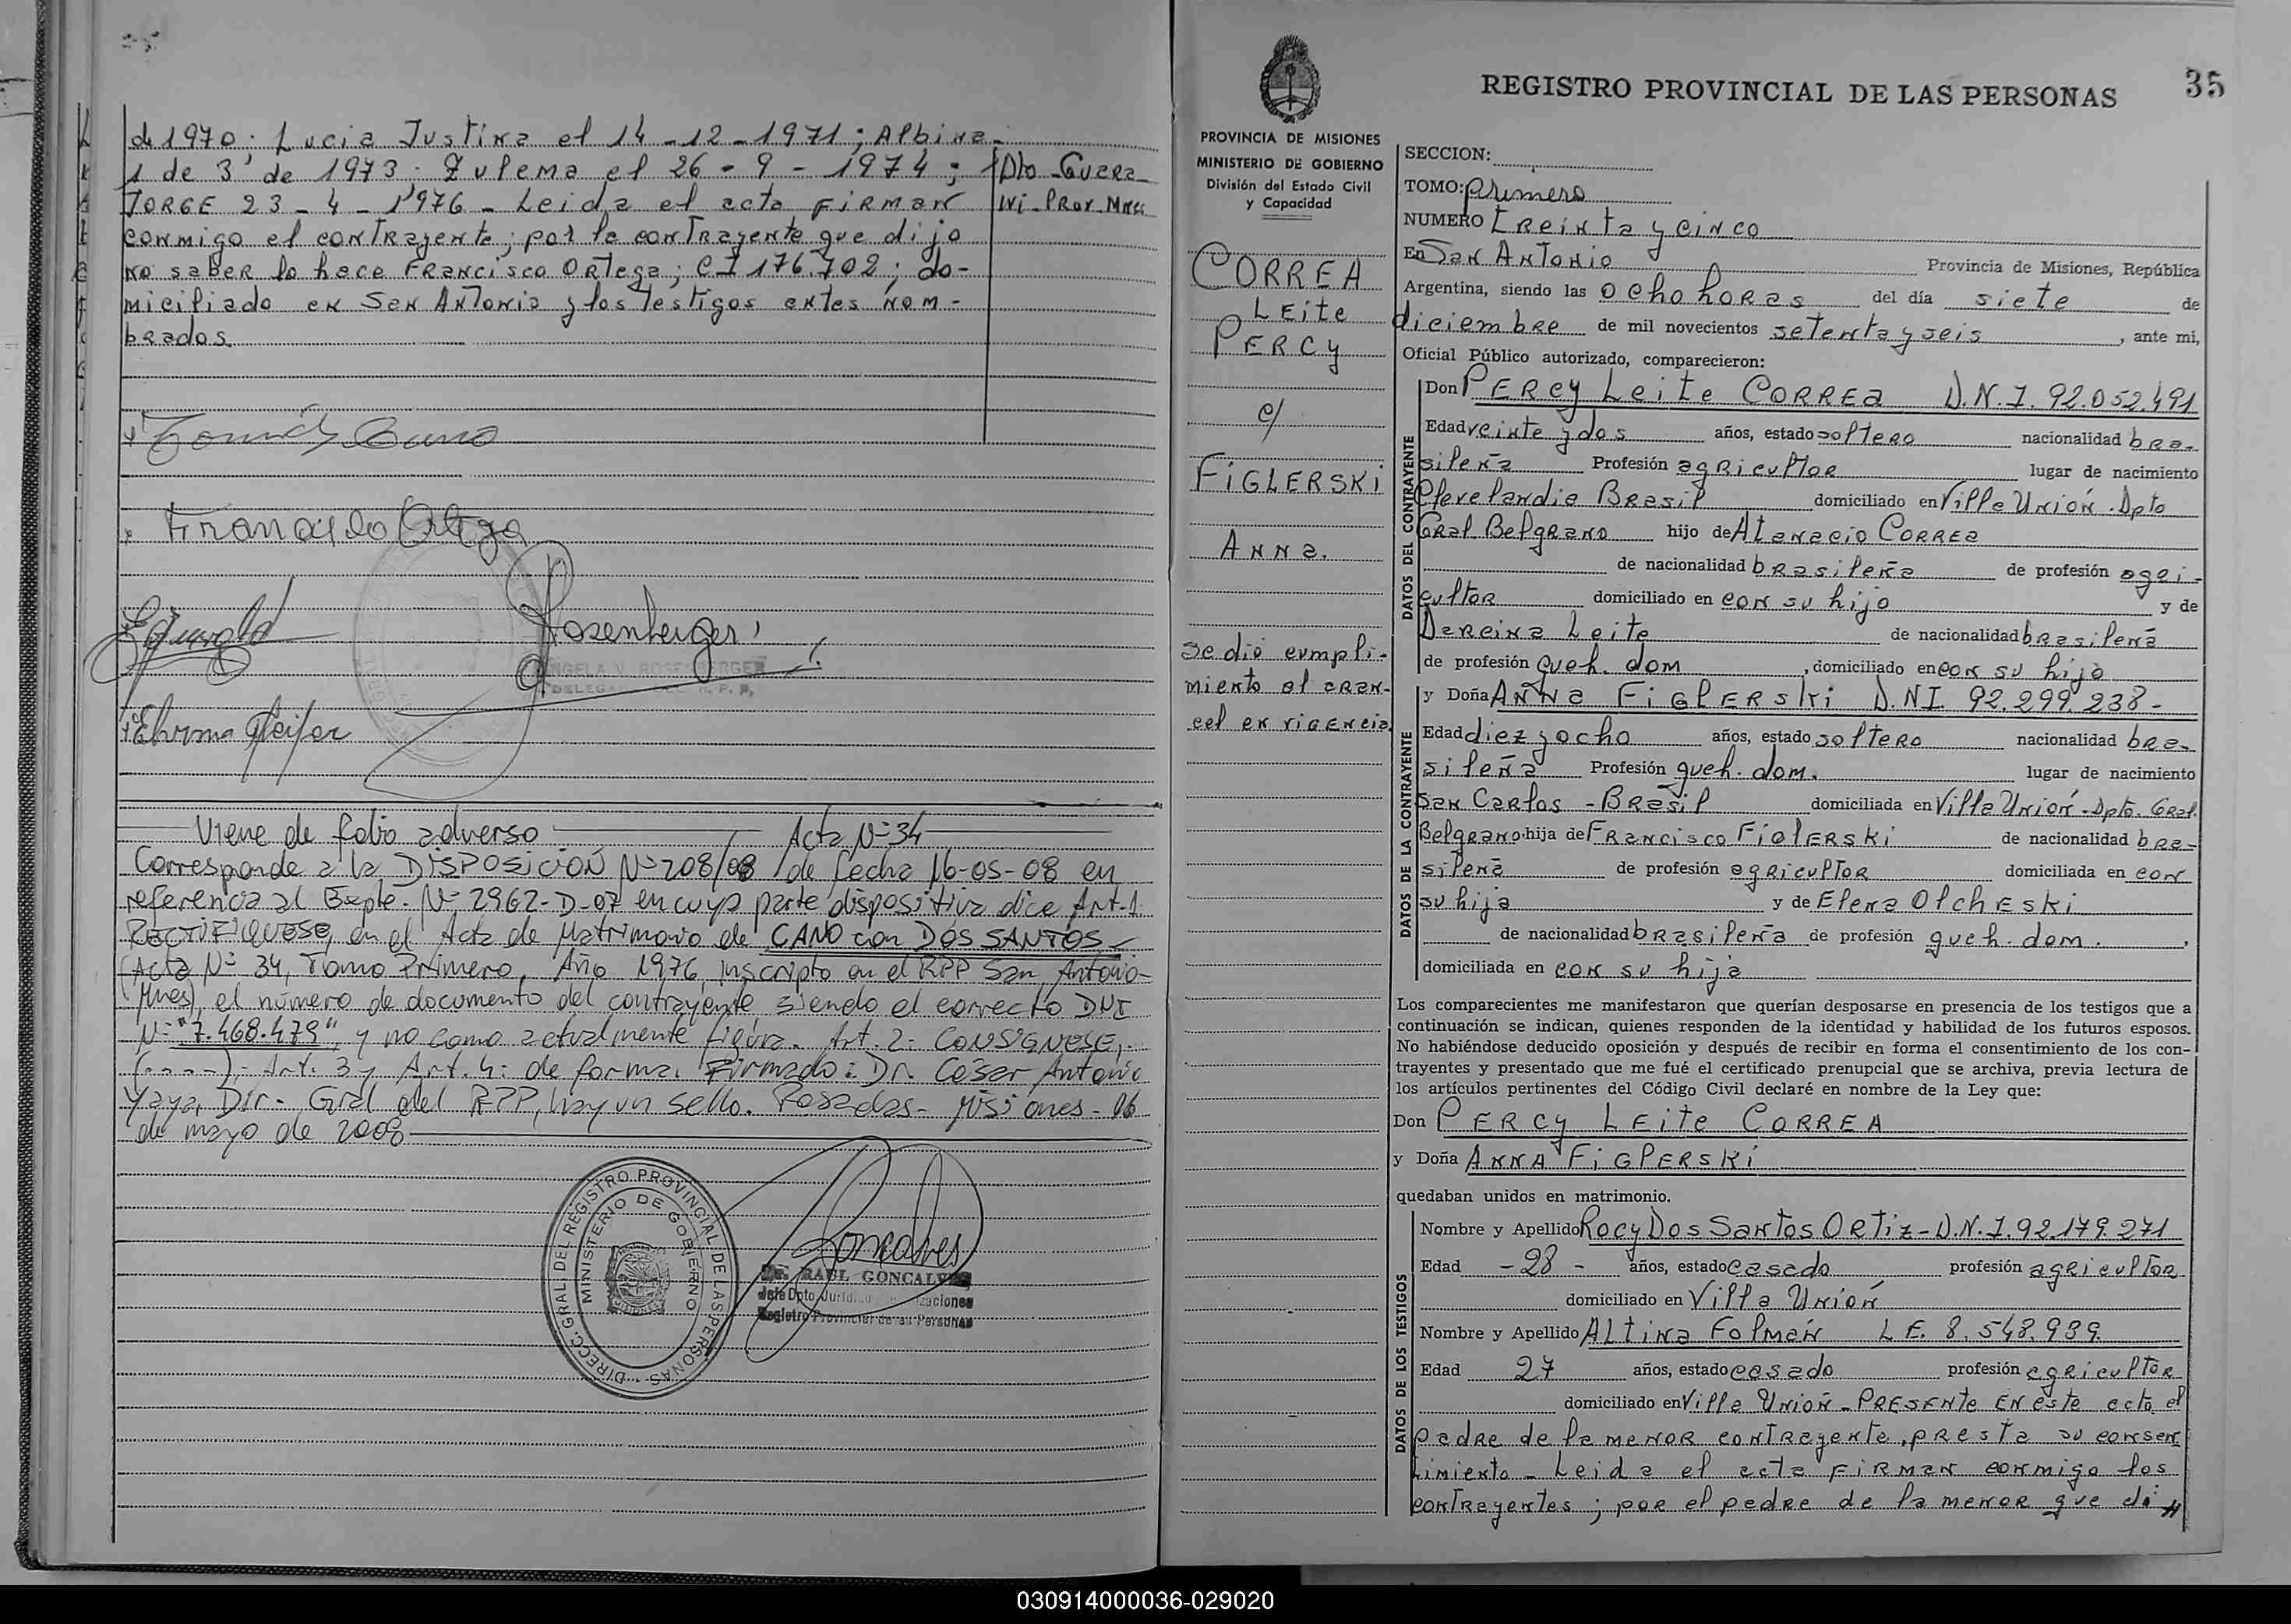 de 1970. Lucia Justina el 14-12-1971; Albina
1 de 3 de 1973. Zulema el 26-9-1974;
JORGE 23-4-1976 - Leida el acta FIRMAN
conmigo el contrayente; por la contrayente que dijo
no saber lo hace Francisco Ortega; CI 176.702; do-
miciliado en San Antonio y los testigos antes nom-
brados.
Dto Guara-
ni-Prov. Mnes
Francisco Ortega
Rosenberger
ANGELA V. ROSENBERGER
Viene de folio adverso Acta Nº 34
Corresponde a la DISPOSICIÓN Nº 208/08 de fecha 16-05-08 en
referencia al Expte. Nº 2962-D-07 en cuya parte dispositiva dice Art-1:
RECTIFIQUESE, en el Acta de Matrimonio de CANO con DOS SANTOS
(Acta Nº 34, Tomo Primero, Año 1976, inscripto en el RPP San Antonio-
Mnes), el número de documento del contrayente siendo el correcto DNI
Nº "7.468.479" y no como actualmente figura. Art. 2- CONSIGNESE,
(----)- Art. 3 y Art. 4: de forma. Firmado: Dr. César Antonio
Yaya, Dir- Gral del RPP, hay un sello. Posadas- Misiones- 16
de mayo de 2008
DIRECC. GRAL. DEL REGISTRO PROVINCIAL DE LAS PERSONAS
MINISTERIO DE GOBIERNO
Goncalves
Dr. RAUL GONCALVES
Jefe Dpto. Juríd.
Registro Provincial de las Personas
REGISTRO PROVINCIAL DE LAS PERSONAS 35
PROVINCIA DE MISIONES
MINISTERIO DE GOBIERNO
División del Estado Civil
y Capacidad
CORREA
LEITE
PERCY
c/
FIGLERSKI
ANNA.
se dió cumpli-
miento al aran-
cel en VIGENCIA
SECCION:
TOMO: primero
NUMERO treinta y cinco
En San Antonio Provincia de Misiones, República
Argentina, siendo las ocho horas del día siete de
diciembre de mil novecientos setenta y seis, ante mi,
Oficial Público autorizado, comparecieron:
DATOS DEL CONTRAYENTE
Don PERCY Leite CORREA D.N.I. 92.052.491
Edad veinte y dos años, estado soltero nacionalidad bra-
sileña Profesión agricultor lugar de nacimiento
Clevelandia Brasil domiciliado en Villa Unión. Dpto
Gral. Belgrano hijo de Atanacio CORREA
de nacionalidad brasileña de profesión agri-
cultor domiciliado en con su hijo y de
Darcina Leite de nacionalidad brasileña
de profesión queh. dom, domiciliado en con su hijo
DATOS DE LA CONTRAYENTE
y Doña ANNA FIGLERSKI D.NI. 92.299.238-
Edad diez y ocho años, estado soltero nacionalidad bra-
sileña Profesión queh. dom. lugar de nacimiento
San Carlos - Brasil domiciliada en Villa Unión-Dpto. Gral.
Belgrano hija de Francisco FIGLERSKI de nacionalidad bra-
sileña de profesión agricultor domiciliada en con
su hija y de Elena OLCHESKI
de nacionalidad brasileña de profesión queh. dom.,
domiciliada en con su hija
Los comparecientes me manifestaron que querían desposarse en presencia de los testigos que a
continuación se indican, quienes responden de la identidad y habilidad de los futuros esposos.
No habiéndose deducido oposición y después de recibir en forma el consentimiento de los con-
trayentes y presentado que me fué el certificado prenupcial que se archiva, previa lectura de
los artículos pertinentes del Código Civil declaré en nombre de la Ley que:
Don PERCY LEITE CORREA
y Doña ANNA FIGLERSKI
quedaban unidos en matrimonio.
DATOS DE LOS TESTIGOS
Nombre y Apellido Rocy Dos Santos Ortiz - D.N.I. 92.179.271
Edad -28- años, estado casado profesión agricultor
domiciliado en Villa Unión
Nombre y Apellido Altina Folmán L E. 8.548.939.
Edad 27 años, estado casado profesión agricultor
domiciliado en Villa Unión - PRESENTE EN este acto el
padre de la menor contrayente, presta su consen
timiento - Leida el acta FIRMAN conmigo los
contrayentes; por el padre de la menor que di
030914000036-029020